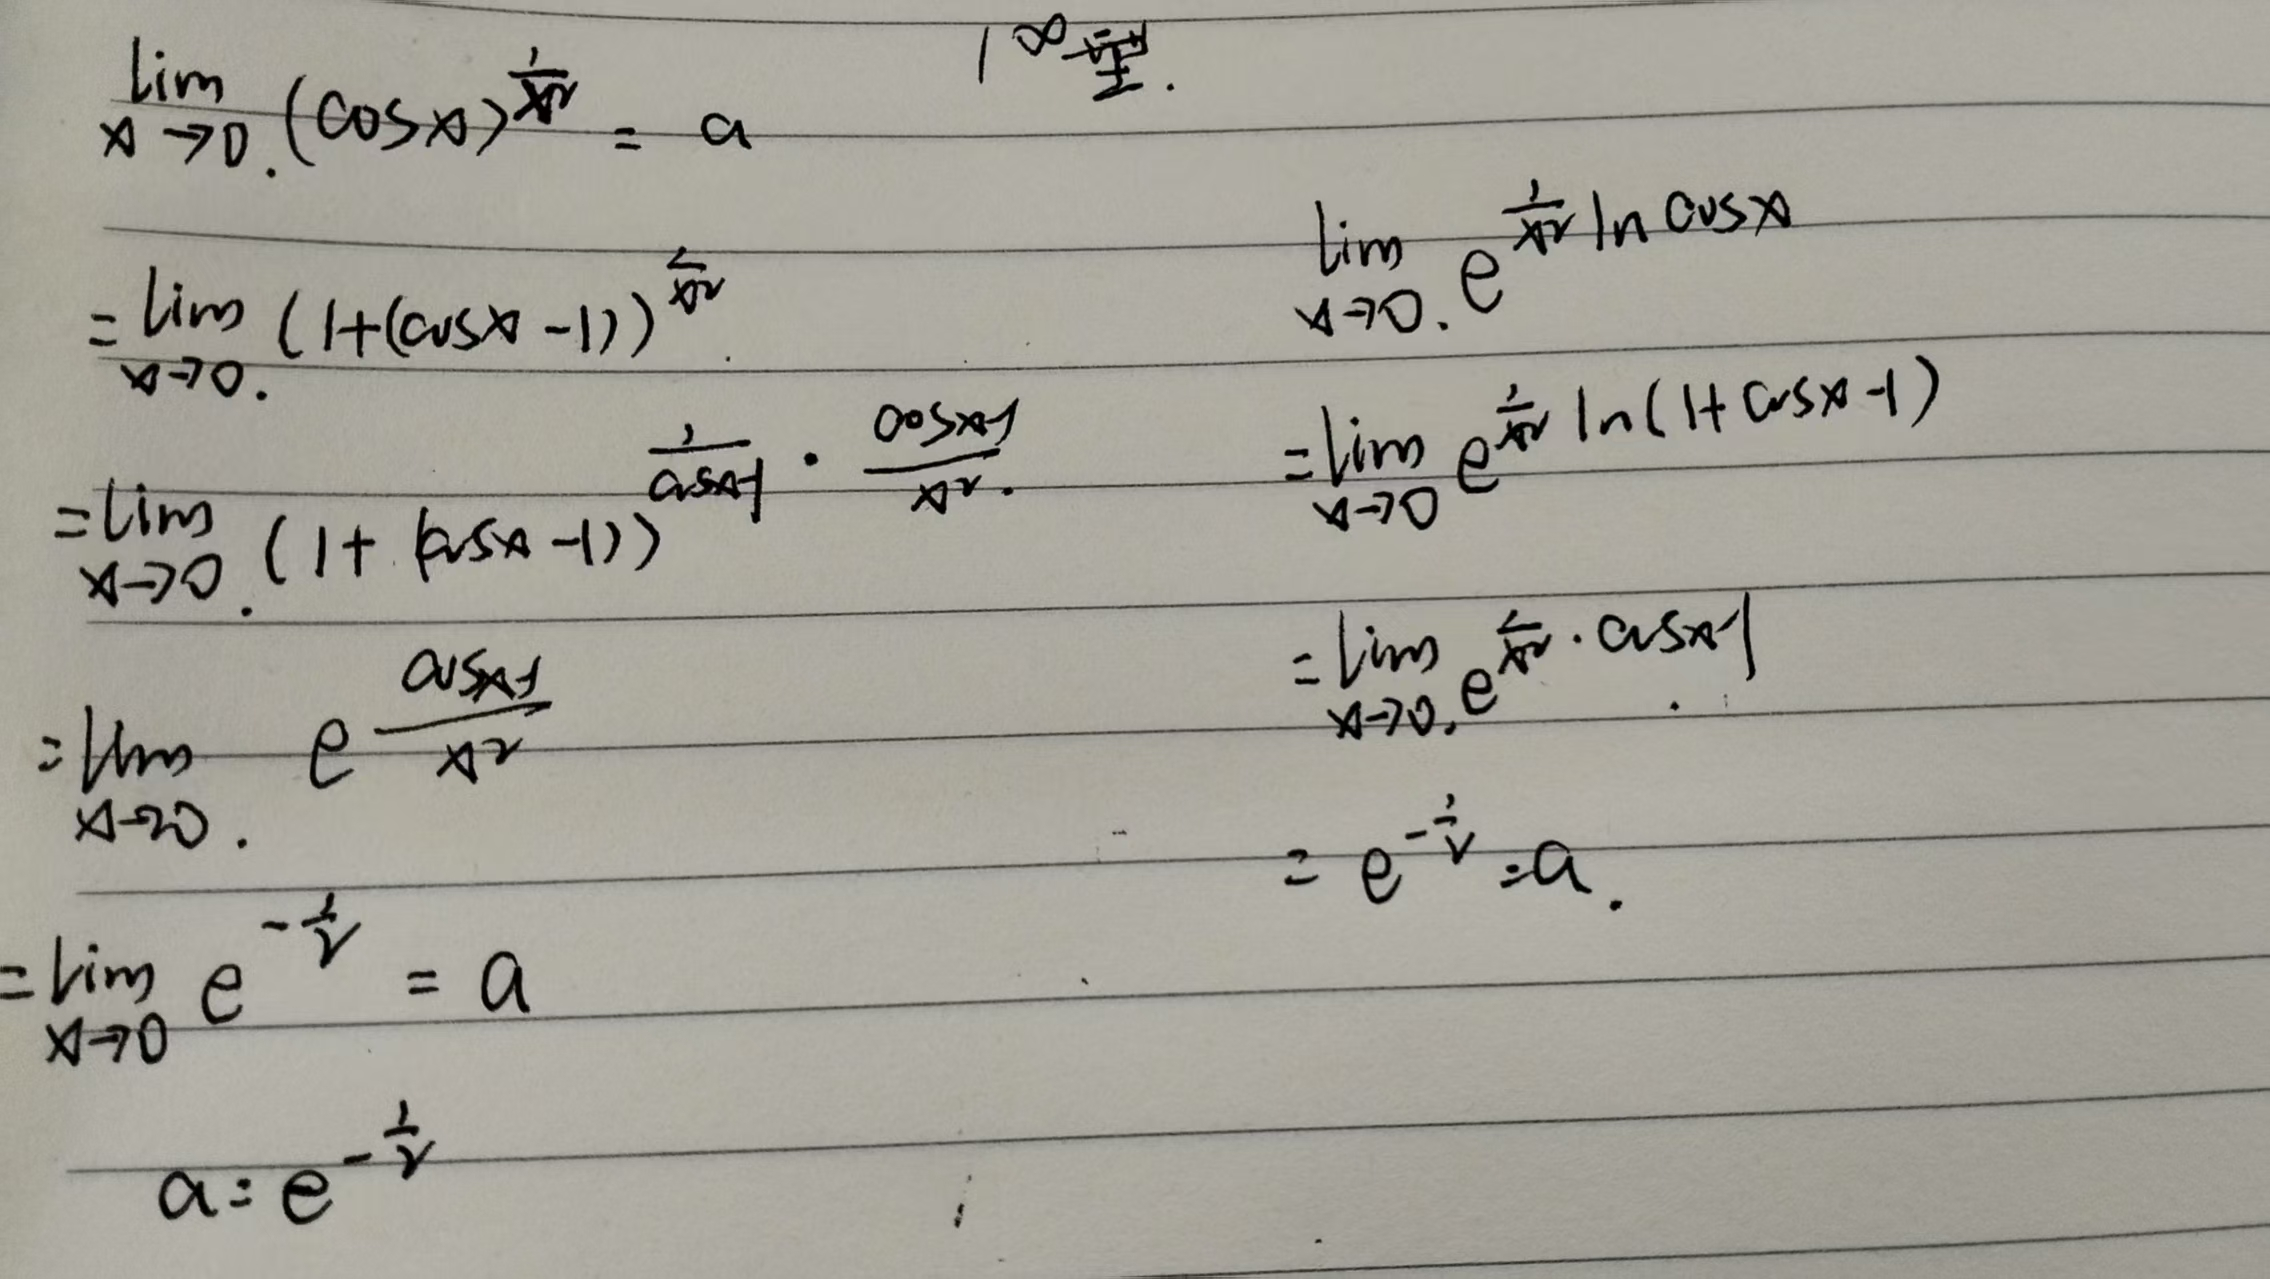 lim_{x→0} (cosx)^{1/x²} = a
1^∞型.
= lim_{x→0} (1+(cosx-1))^{1/x²}
= lim_{x→0} (1+(cosx-1))^{1/(cosx-1) · (cosx-1)/x²}
= lim_{x→0} e^{(cosx-1)/x²}
= lim_{x→0} e^{-1/2} = a
a = e^{-1/2}
lim_{x→0} e^{1/x² ln cosx}
= lim_{x→0} e^{1/x² ln(1+cosx-1)}
= lim_{x→0} e^{1/x² · cosx-1}
= e^{-1/2} = a.